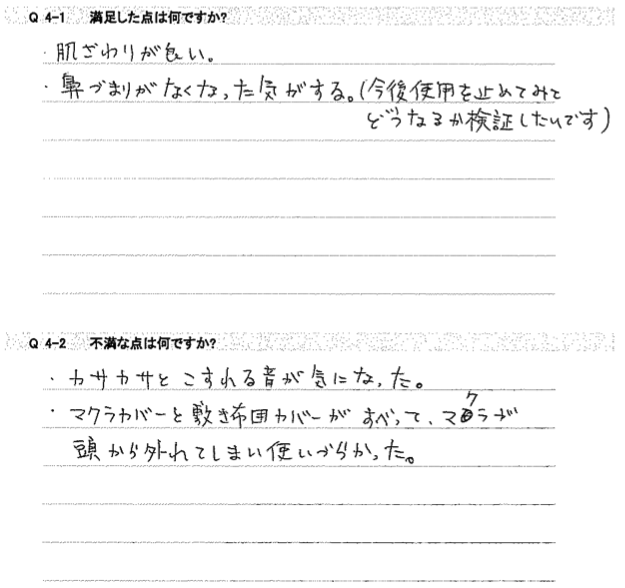 Q 4-1 満足した点は何ですか?
・肌ざわりが良い。
・鼻づまりがなくなった気がする。(今後使用を止めてみて
どうなるか検証したいです)
Q 4-2 不満な点は何ですか?
・カサカサとこすれる音が気になった。
・マクラカバーと敷き布団カバーがすべって、マクラが
頭から外れてしまい使いづらかった。